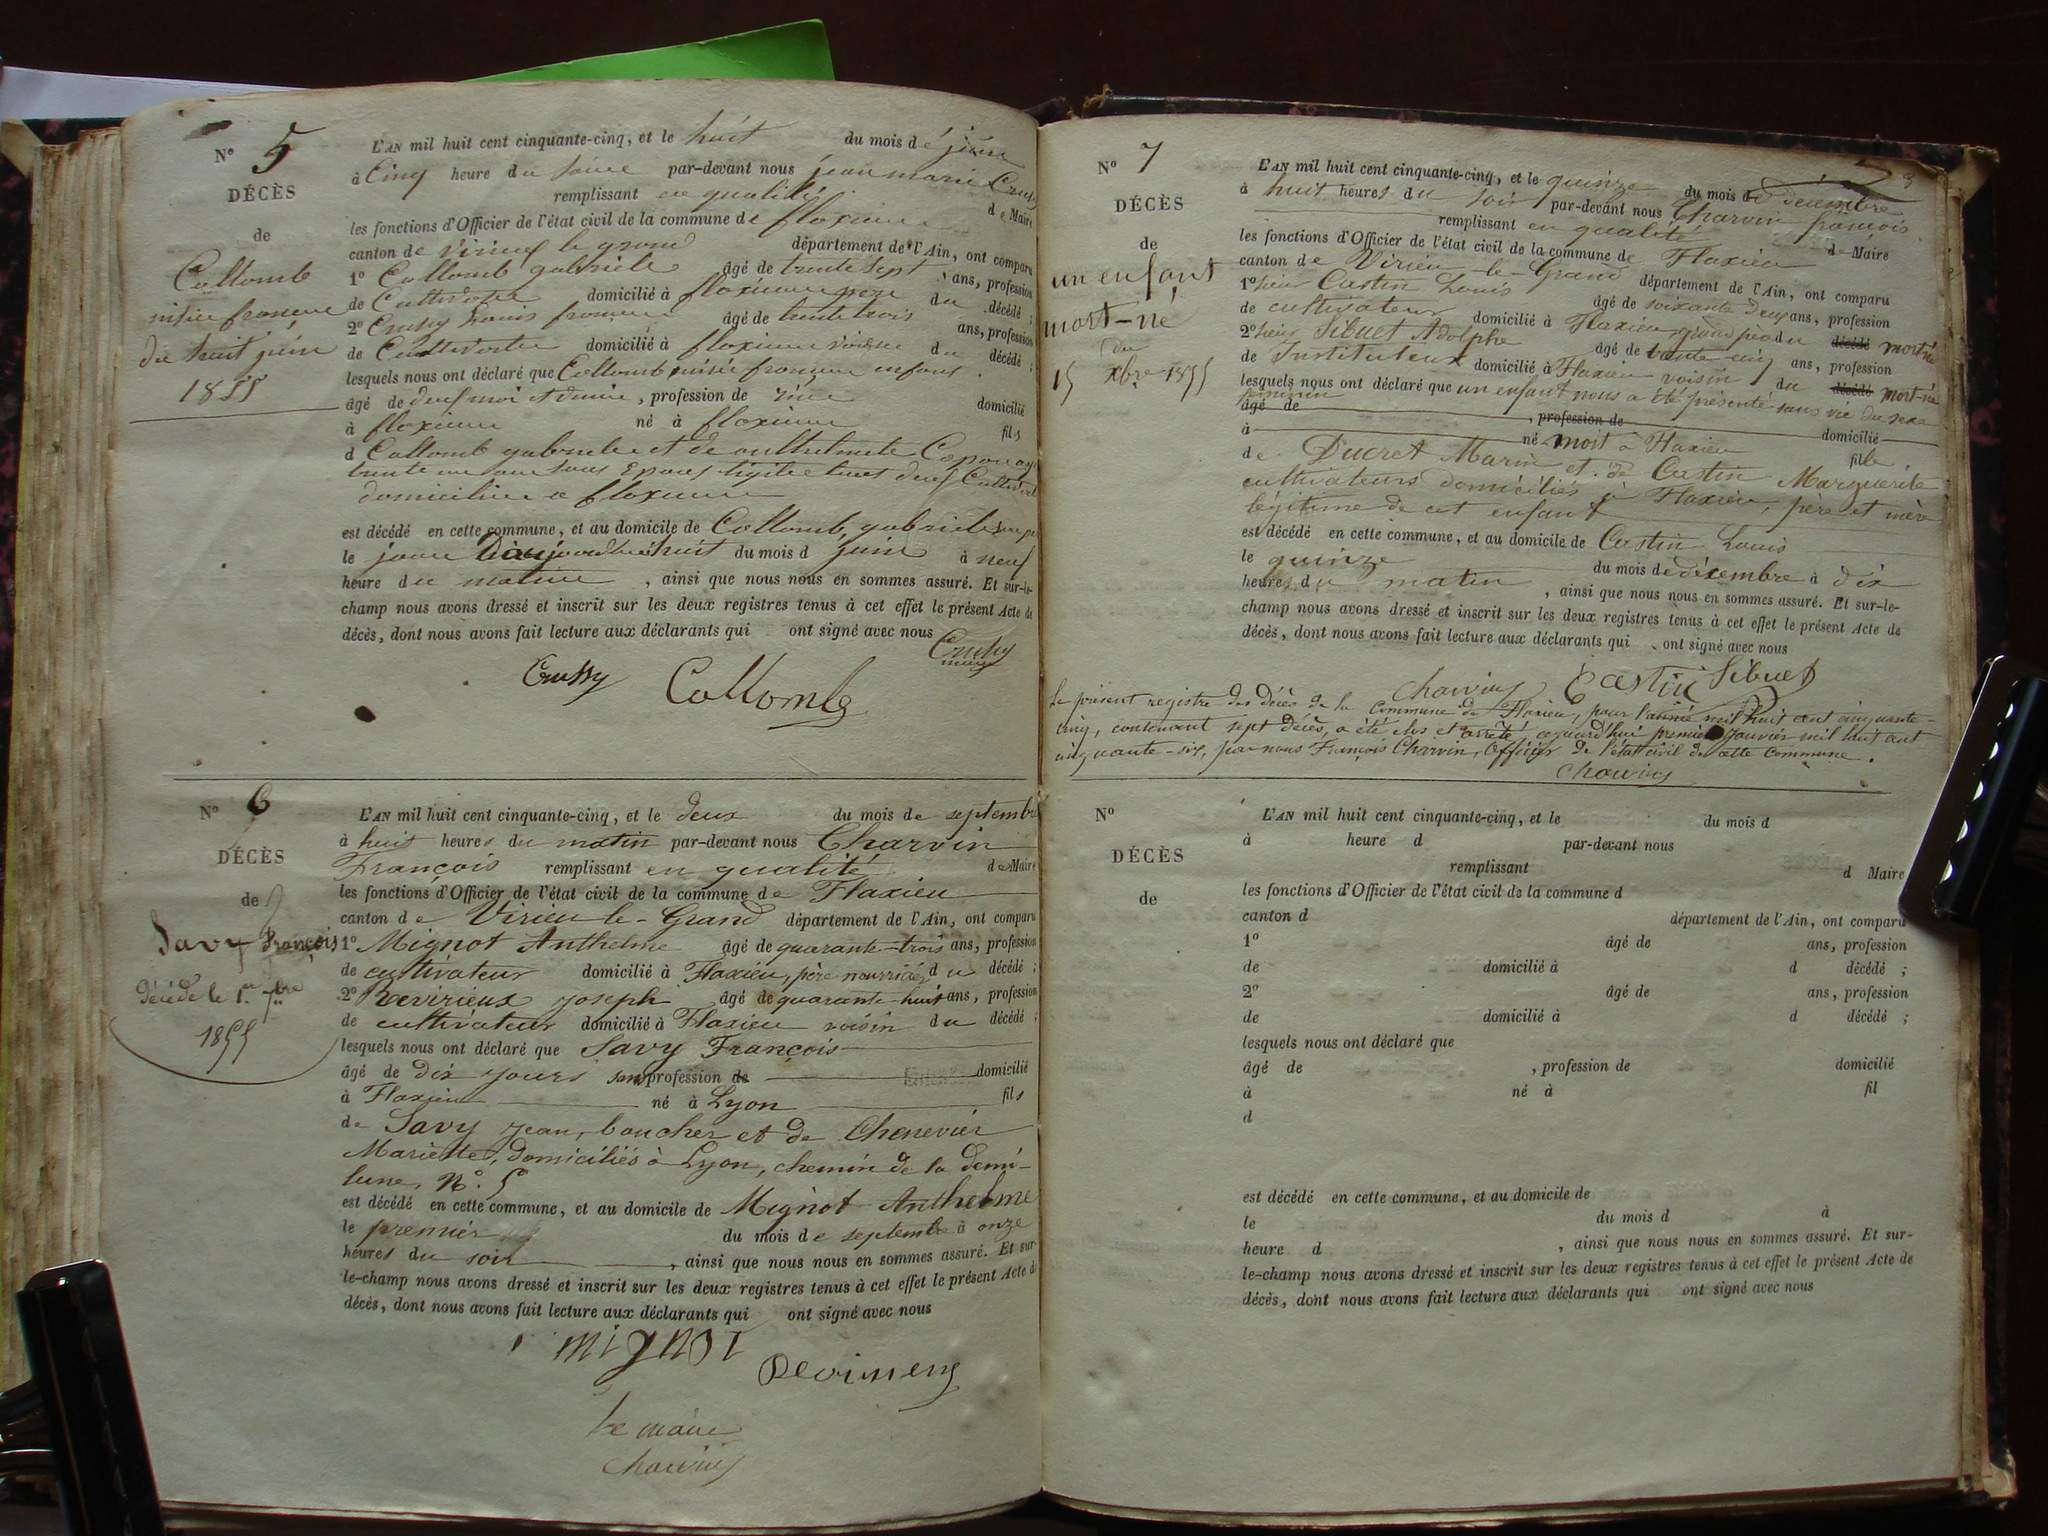 N° 5
DÉCÈS
de
Collomb
du huit juin
1855
L'AN mil huit cent cinquante-cinq, et le huit du mois de juin
à Cinq heure du par-devant nous jean marie
remplissant en qualité de Maire
les fonctions d'Officier de l'état civil de la commune de
canton de département de l'Ain, ont comparu
1° Collomb gabriele âgé de trente sept ans, profession
de domicilié à du décédé ;
2° âgé de trente trois ans, profession
de domicilié à du décédé ;
lesquels nous ont déclaré que Collomb
âgé de , profession de domicilié
à né à fils
d Collomb et de
est décédé en cette commune, et au domicile de Collomb gabriele
le huit du mois d juin à neuf
heure du matin , ainsi que nous nous en sommes assuré. Et sur-le-
champ nous avons dressé et inscrit sur les deux registres tenus à cet effet le présent Acte de
décès, dont nous avons fait lecture aux déclarants qui ont signé avec nous
Collomb
N° 6
DÉCÈS
de
Savy François
décédé le 1er 7bre
1855
L'AN mil huit cent cinquante-cinq, et le deux du mois de septembre
à huit heures du matin par-devant nous Charvin
François remplissant en qualité de Maire
les fonctions d'Officier de l'état civil de la commune de Flaxieu
canton de Virieu-le-Grand département de l'Ain, ont comparu
1° Mignot Anthelme âgé de quarante-trois ans, profession
de cultivateur domicilié à Flaxieu, père nourricier du décédé ;
2° Revirieux Joseph âgé de quarante-huit ans, profession
de cultivateur domicilié à Flaxieu voisin du décédé ;
lesquels nous ont déclaré que Savy François
âgé de dix jours sans profession de domicilié
à Flaxieu né à Lyon fils
de Savy Jean, boucher et de Chenevier
Mariette, domiciliés à Lyon, chemin de la demi-
lune, N°. 5
est décédé en cette commune, et au domicile de Mignot Anthelme
le premier du mois de septembre à onze
heures du soir , ainsi que nous nous en sommes assuré. Et sur-
le-champ nous avons dressé et inscrit sur les deux registres tenus à cet effet le présent Acte de
décès, dont nous avons fait lecture aux déclarants qui ont signé avec nous
mignot
le maire
Charvin
N° 7
DÉCÈS
de
un enfant
mort-né
du
15 xbre 1855
L'AN mil huit cent cinquante-cinq, et le quinze du mois de décembre
à huit heures du soir par-devant nous Charvin françois
remplissant en qualité de Maire
les fonctions d'Officier de l'état civil de la commune de Flaxieu
canton de Virieu-le-Grand département de l'Ain, ont comparu
1° sieur Castin Louis âgé de soixante deux ans, profession
de cultivateur domicilié à Flaxieu, grand père du décédé mort-né
2° sieur Sibuet Adolphe âgé de trente-cinq ans, profession
de Instituteur domicilié à Flaxieu voisin du décédé mort-né
lesquels nous ont déclaré que un enfant nous a été présenté sans vie du sexe
féminin
âgé de , profession de domicilié
à né mort à Flaxieu fille
de Ducret Marin et de Castin Marguerite
cultivateurs domiciliés à Flaxieu, père et mère
légitime de cet enfant
est décédé en cette commune, et au domicile de Castin Louis
le quinze du mois de décembre à dix
heures du matin , ainsi que nous nous en sommes assuré. Et sur-le-
champ nous avons dressé et inscrit sur les deux registres tenus à cet effet le présent Acte de
décès, dont nous avons fait lecture aux déclarants qui ont signé avec nous
Charvin Castin Sibuet
Le présent registre des décès de la Commune de Flaxieu, pour l'année mil huit cent cinquante-
cinq, contenant sept décès, a été clos et arrêté aujourd'hui premier Janvier mil huit cent
cinquante-six, par nous François Charvin, Officier de l'état civil de cette Commune.
Charvin
N°
DÉCÈS
de
L'AN mil huit cent cinquante-cinq, et le du mois d
à heure d par-devant nous
remplissant d Maire
les fonctions d'Officier de l'état civil de la commune d
canton d département de l'Ain, ont comparu
1° âgé de ans, profession
de domicilié à d décédé ;
2° âgé de ans, profession
de domicilié à d décédé ;
lesquels nous ont déclaré que
âgé de , profession de domicilié
à né à fil
d
est décédé en cette commune, et au domicile de
le du mois d à
heure d , ainsi que nous nous en sommes assuré. Et sur-
le-champ nous avons dressé et inscrit sur les deux registres tenus à cet effet le présent Acte de
décès, dont nous avons fait lecture aux déclarants qui ont signé avec nous